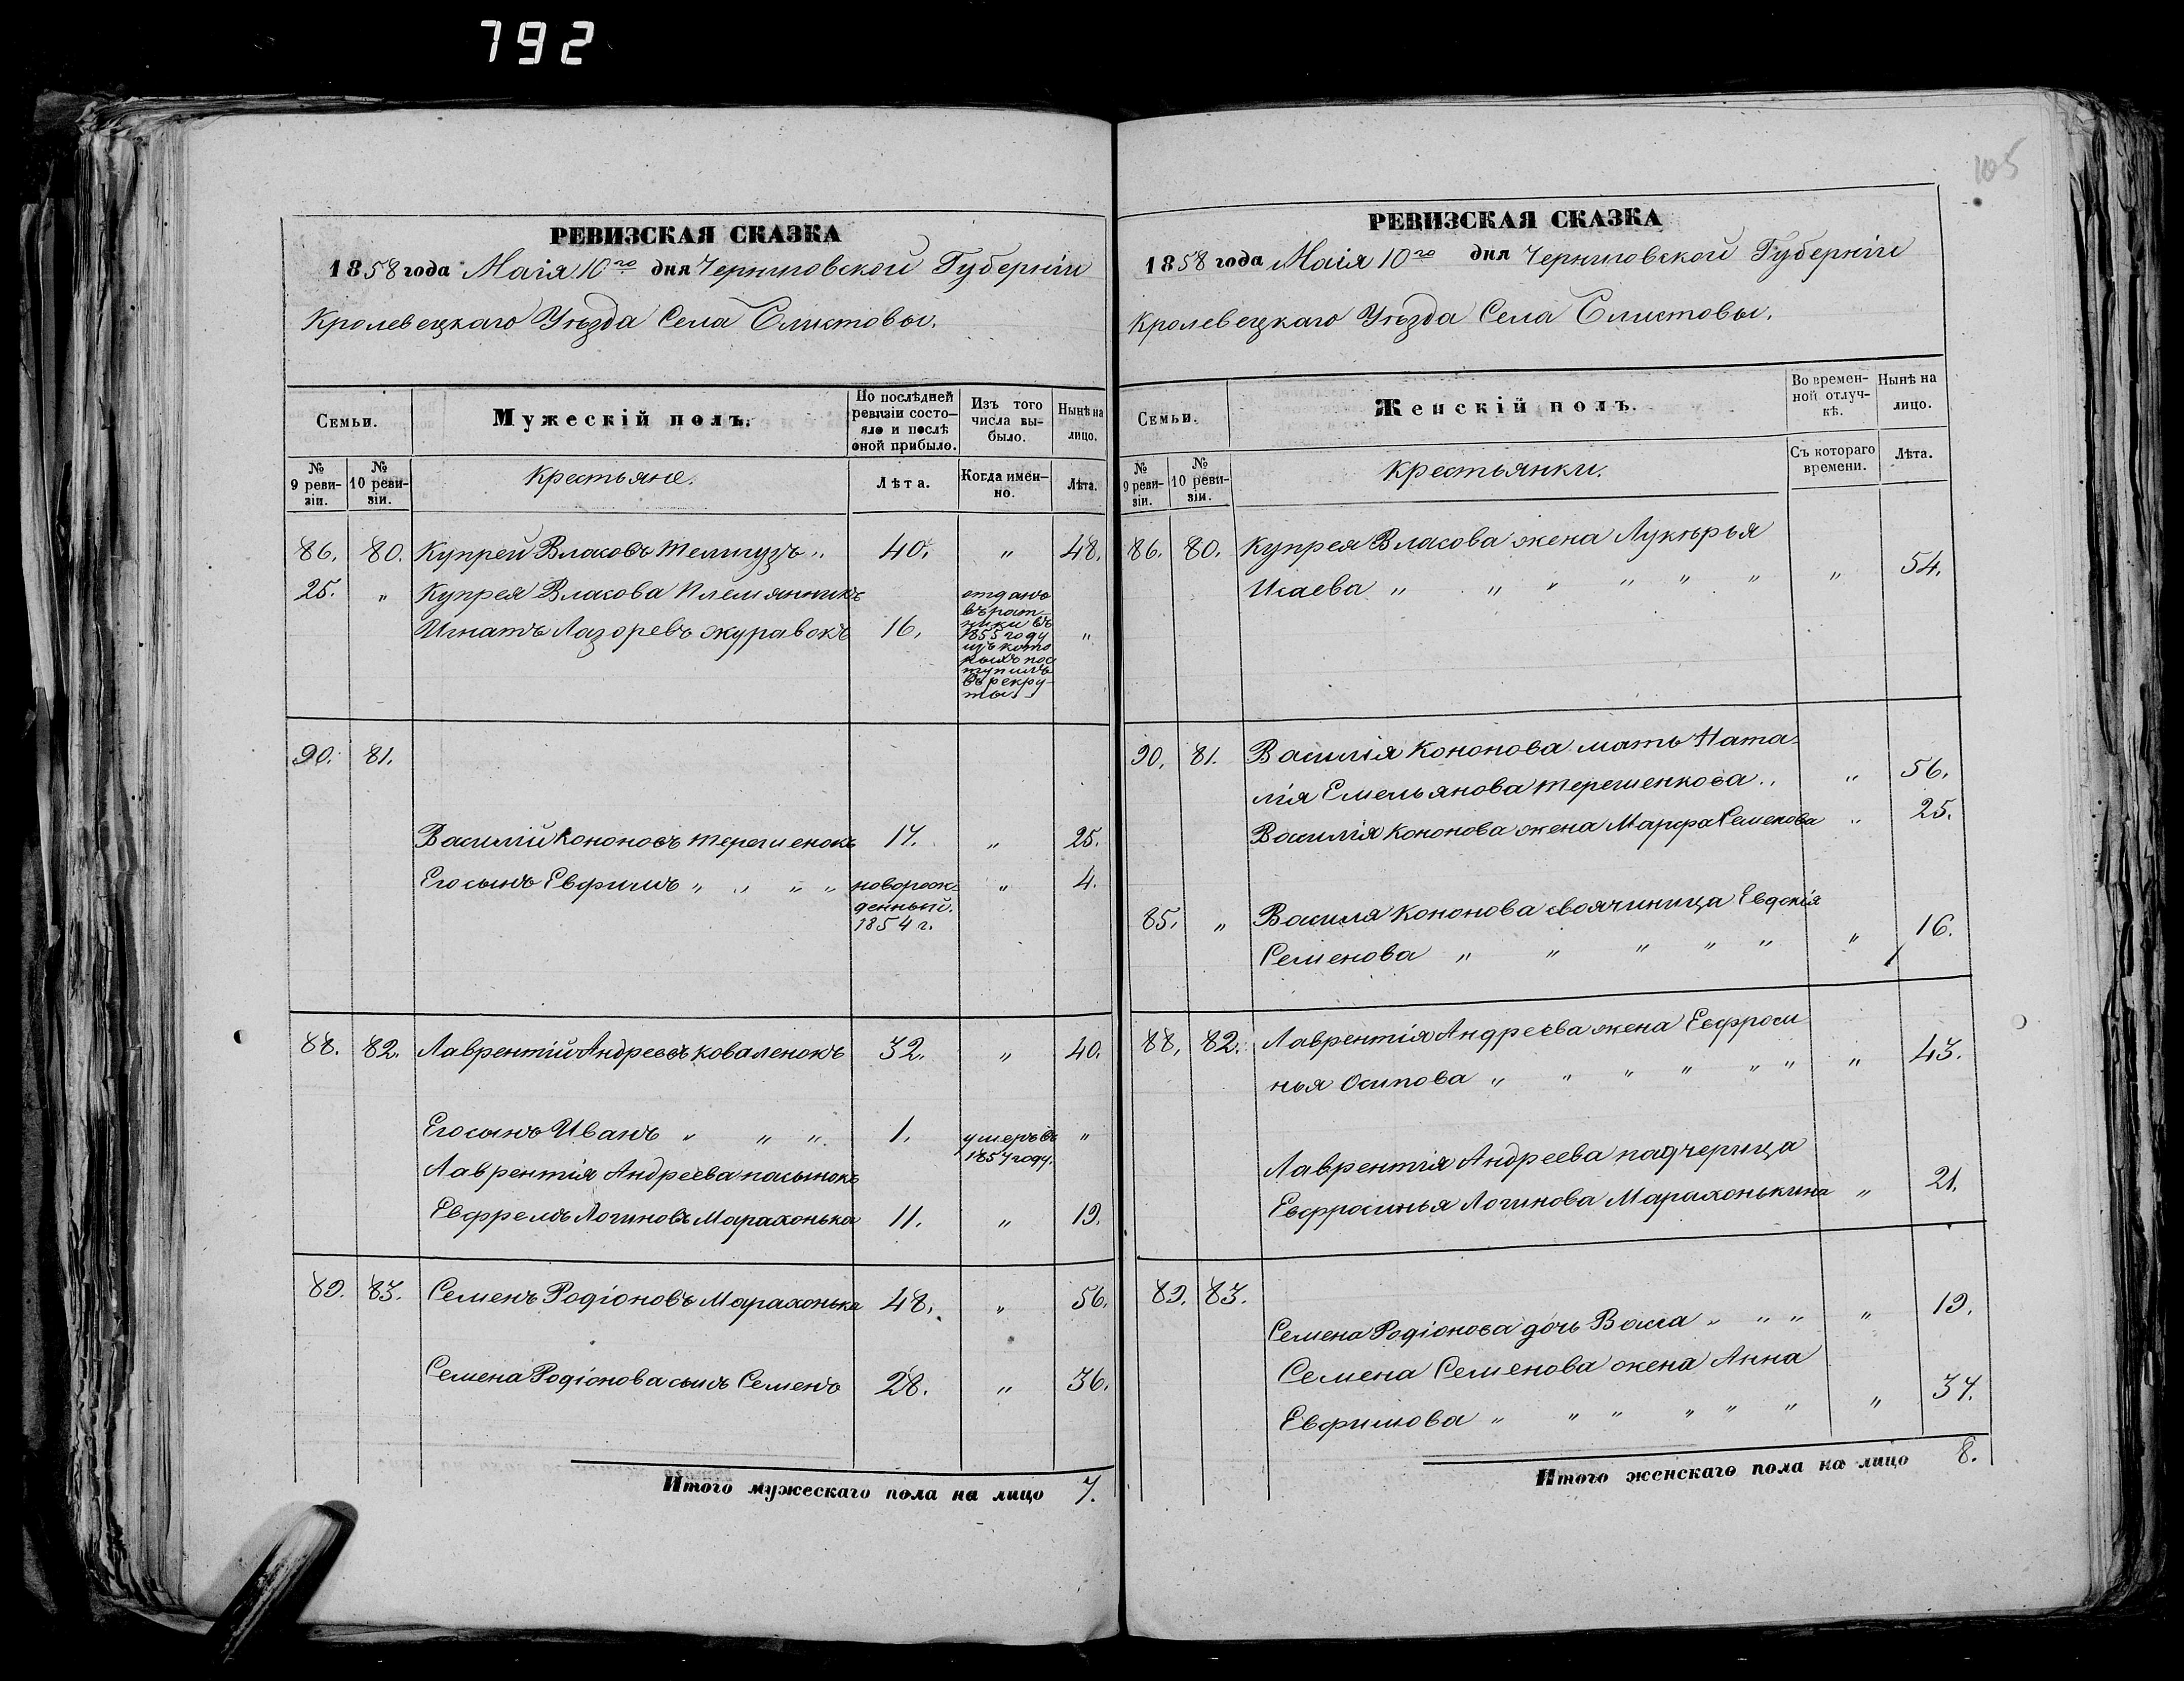 792
105
РЕВИЗСКАЯ СКАЗКА
1858 года Маія 10го дня Черниговской Губерніи
Кролевецкаго Уѣзда Села Слистовы.
Семьи.
Мужескій полъ.
По послѣдней ревизіи состояло и послѣ оной прибыло.
Изъ того числа выбыло.
Нынѣ на лицо.
№ 9 ревизіи.
№ 10 ревизіи.
Крестьяне.
Лѣта.
Когда именно.
Лѣта.
86. 80. Купрей Власовъ Телигузъ „ 40. „ 48.
25. „ Купрея Власова Племянникъ
Игнатъ Лазоревъ журавокъ 16. „
отданъ
въ рат-
ники въ
1855 году
изъ кото
рыхъ пос
тупилъ
въ рекру-
ты.
90. 81.
Василій Кононовъ терешенокъ 17. „ 25.
Его сынъ Евфимъ „ „ „ „ новорож- „ 4.
денный.
1854 г.
88. 82. Лаврентій Андреевъ коваленокъ 32. „ 40.
Его сынъ Иванъ „ „ „ 1. умеръ въ „
1857 году.
Лаврентія Андреева пасынокъ
Евфремъ Логиновъ Марахонька 11. „ 19.
89. 83. Семенъ Родіоновъ Марахонька 48. „ 56.
Семена Родіонова сынъ Семенъ 28. „ 36.
Итого мужескаго пола на лицо 7.
РЕВИЗСКАЯ СКАЗКА
1858 года Маія 10го дня Черниговской Губерніи
Кролевецкаго Уѣзда Села Слистовы.
Семьи.
Женскій полъ.
Во временной отлучкѣ.
Нынѣ на лицо.
№ 9 ревизіи.
№ 10 ревизіи.
Крестьянки.
Съ котораго времени.
Лѣта.
86. 80. Купрея Власова жена Лукѣрья
Исаева „ „ „ „ „ „ „ 54.
90. 81. Василія Кононова мать Ната-
лія Емельянова терешенкова „ „ 56.
Василія Кононова жена Марфа Семенова „ 25.
85. „ Василя Кононова своячиница Евдокія
Семенова „ „ „ „ „ „ 16.
88. 82. Лаврентія Андреева жена Евфроси
нья Осипова „ „ „ „ „ „ „ 43.
Лаврентія Андреева падчерица
Евфросинья Логинова Марахонькина „ 21.
89. 83.
Семена Родіонова дочь Васса „ „ „ „ 19.
Семена Семенова жена Анна
Евфимова „ „ „ „ „ „ „ 37.
Итого женскаго пола на лицо 8.